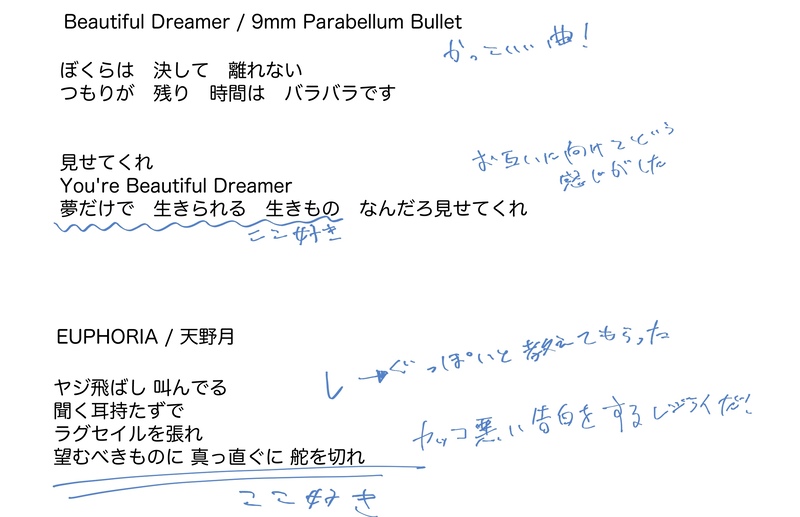 Beautiful Dreamer / 9mm Parabellum Bullet
かっこいい曲!
ぼくらは　決して　離れない
つもりが　残り　時間は　バラバラです
見せてくれ
You're Beautiful Dreamer
お互いに向けてという
感じがした
夢だけで　生きられる　生きもの　なんだろ見せてくれ
ここ好き
EUPHORIA / 天野月
し→ぐっぽいと教えてもらった
ヤジ飛ばし 叫んでる
聞く耳持たずで
ラグセイルを張れ
カッコ悪い告白をするしジライだ!
望むべきものに 真っ直ぐに 舵を切れ
ここ好き